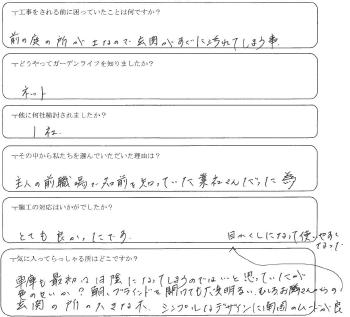 工事をされる前に困っていたことは何ですか?
前の庭の所が土なので玄関がすぐに汚れてしまう事
どうやってガーデンライフを知りましたか?
ネット
他に何社検討されましたか?
1社
その中から私たちを選んでいただいた理由は?
主人の前職場で名前を知っていた業社さんだった為
施工の対応はいかがでしたか?
とても良かったです。
目かくしになって使いやすくなった
気に入ってらっしゃる所はどこですか?
車庫も最初は日陰になってしまうのではないかと思っていたが
色のせいか? 朝、ブラインドを開けても大変明るい、むしろお隣さんからの
玄関の所の大きな木 シンプルなデザインに南国のムードが良